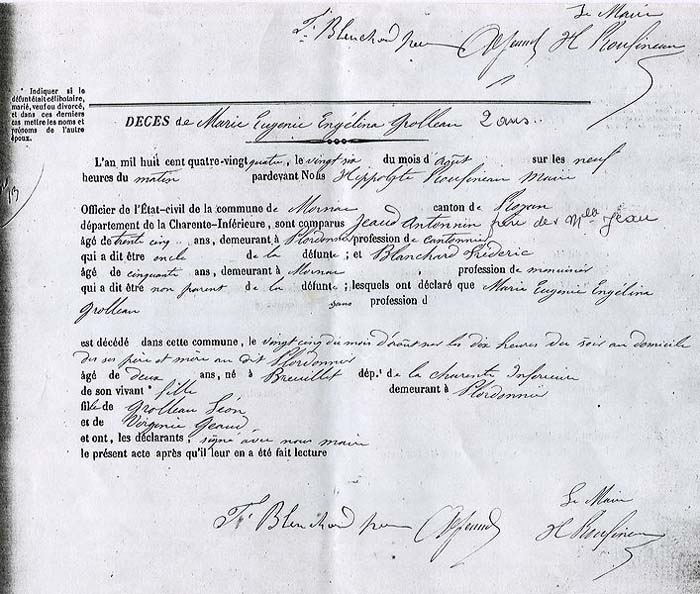 Le Maire
Fc Blanchard père AJeaud H Roufineau
* Indiquer si le
défunt était célibataire,
marié, veuf ou divorcé,
et dans ces derniers
cas mettre les noms et
prénoms de l'autre
époux.
DECES de Marie Eugenie Engélina Grolleau 2 ans.
L'an mil huit cent quatre-vingt quatre, le vingt six du mois d'août sur les neuf
heures du matin pardevant Nous Hippolyte Roufineau maire
Officier de l'État-civil de la commune de Mornac canton de Royan
département de la Charente-Inférieure, sont comparus Jeaud Antonnin frère de Mlle Jeau
âgé de trente cinq ans, demeurant à Plordonnier profession de cantonnier
qui a dit être oncle de la défunte ; et Blanchard Fréderic
âgé de cinquante ans, demeurant à Mornac profession de meunier
qui a dit être non parent de la défunte ; lesquels ont déclaré que Marie Eugenie Engélina
Grolleau sans profession d
est décédé dans cette commune, le vingt cinq du mois d'août sur les dix heures du soir au domicile
de ses père et mère au dit Plordonnier
âgé de deux ans, né à Breuillet dép.t de la charente Inferieure
de son vivant * fille demeurant à Plordonnier
fille de Grolleau Léon
et de Virginie Jeaud
et ont, les déclarants, signé avec nous maire
le présent acte après qu'il leur en a été fait lecture
Le Maire
Fc Blanchard père AJeaud H Roufineau